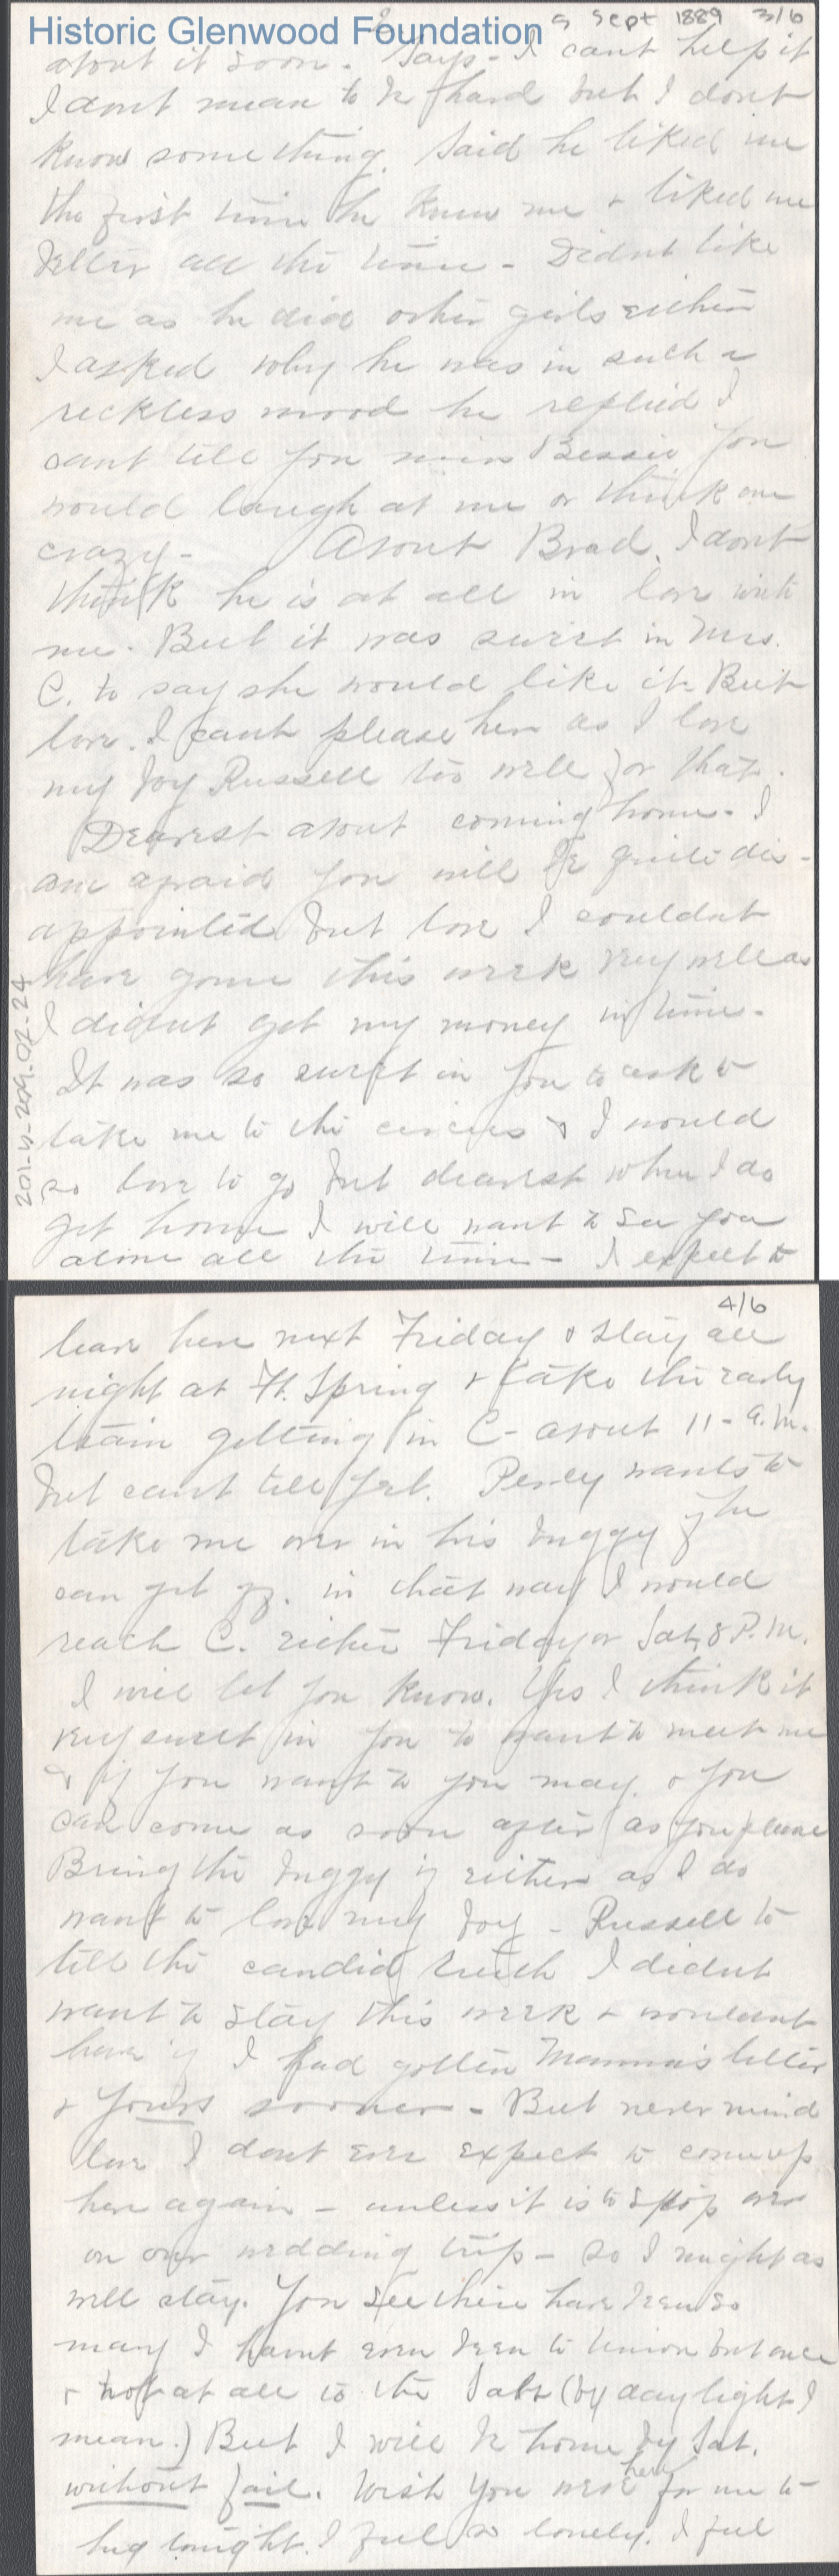 Historic Glenwood Foundation
9 Sept 1889 3/6
about it soon. Says - I cant help it
I dont mean to be hard but I dont
know something. Said he liked me
the first time he knew me & liked me
better all the time - Didnt like
me as he did other girls either
I asked why he was in such a
reckless mood he replied I
cant tell you miss Bessie you
would laugh at me or think me
crazy - About Brad. I dont
think he is at all in love with
me. But it was sweet in Mrs.
C. to say she would like it. But
love. I cant please her as I love
my boy Russell too well for that.
Dearest about coming home - I
am afraid you will be quite dis-
appointed but love I couldnt
have gone this week very well as
I didnt get my money in time -
It was so sweet in you to ask to
take me to the circus & I would
so love to go but dearest when I do
get home I will want to see you
alone all the time - I expect to
201-W-209.02-24
4/6
leave here next Friday & stay all
night at Ft. Spring & take the early
train getting in C - about 11 - a.m.
but cant tell yet. Percy wants to
take me over in his buggy if he
can get off. in that way I would
reach C. either Friday or Sat, 8 P.M.
I will let you know. Yes I think it
very sweet in you to want to meet me
& if you want to you may. & you
can come as soon after as you please
Bring the buggy if either as I do
want to love my boy - Russell to
tell the candid truth I didnt
want to stay this week & wouldnt
have if I had gotten Mamma's letter
& yours sooner - But never mind
love I dont ever expect to come up
here again - unless it is to stop over
on our wedding trip - so I might as
well stay. You see there have been so
many I havnt even been to Union but once
& not at all to the Salt (by daylight I
mean.) But I will be home by Sat.
without fail. Wish you were here for me to
hug tonight. I feel so lonely. I feel